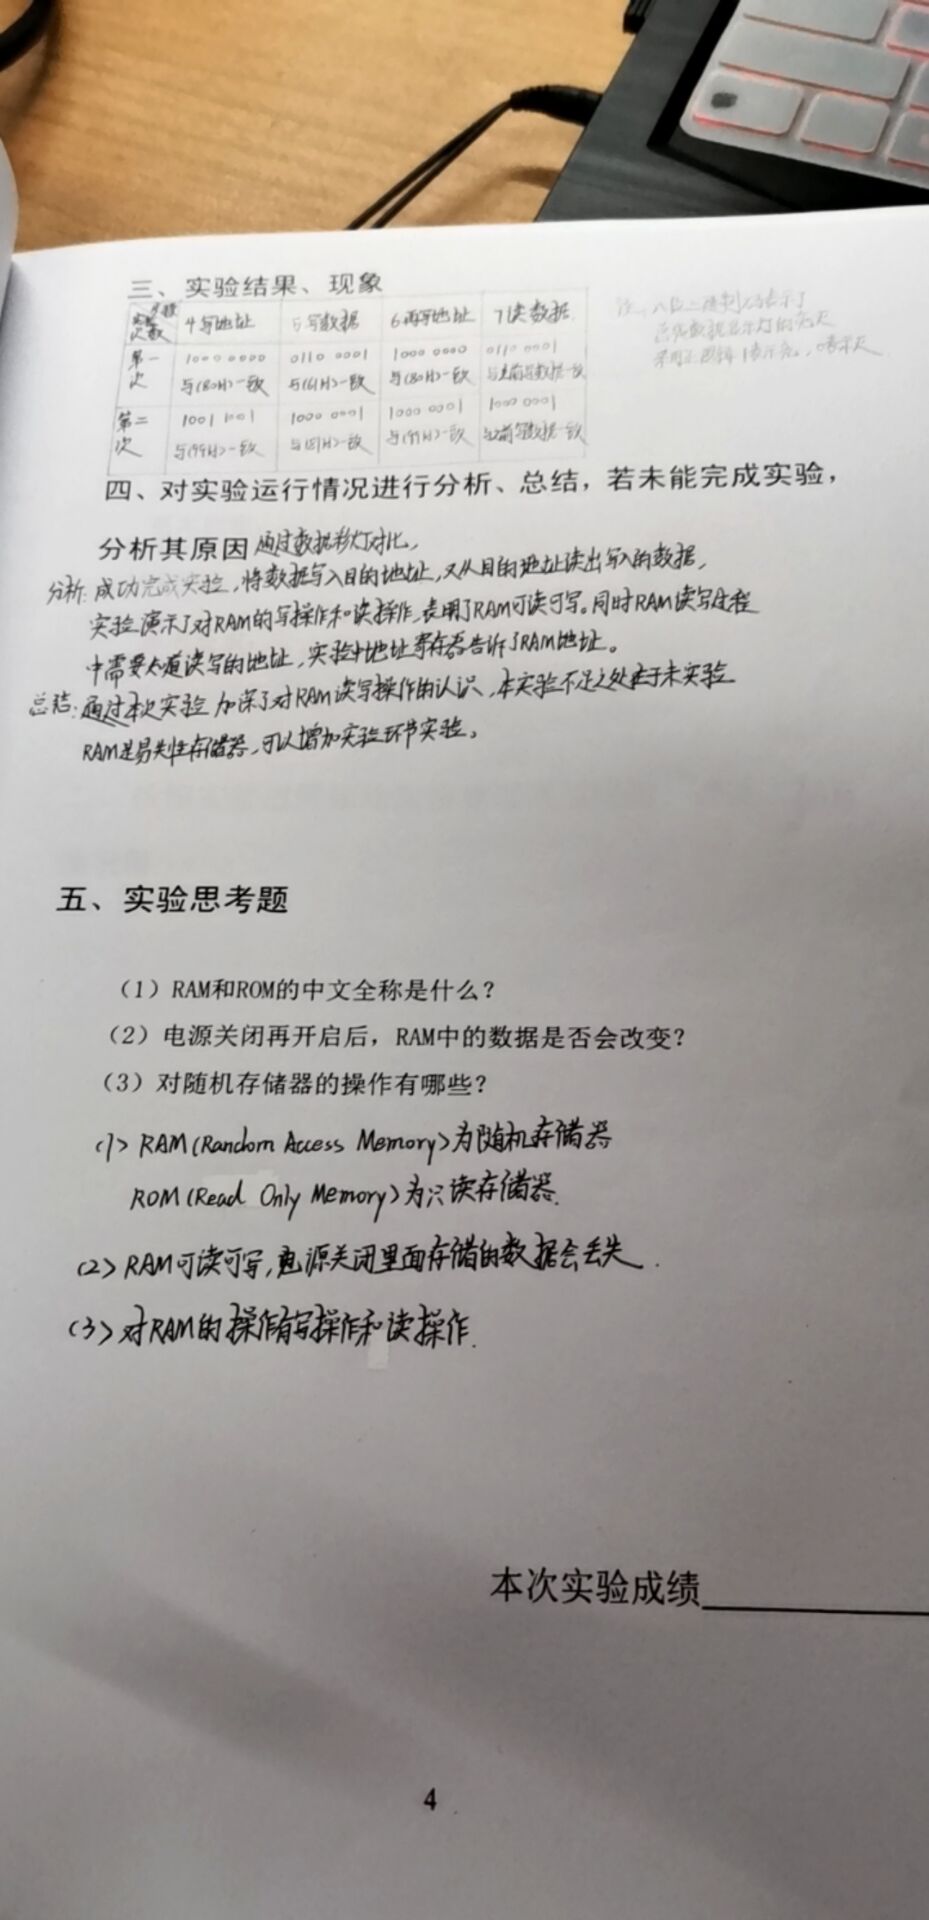 三、实验结果、现象
步骤
次数 4写地址 5写数据 6再写地址 7读数据
第一次 1000 0000 0110 0001 1000 0000 0110 0001
与(80H)一致 与(61H)一致 与(80H)一致 与之前写数据一致
第二次 1001 1001 1000 0001 1000 0001
与(99H)一致 与(81H)一致 与之前写数据一致
注: 八位二进制
总线数据显示灯的亮灭
1表示亮, 0表示灭
四、对实验运行情况进行分析、总结，若未能完成实验，
分析其原因 通过数据彩灯对比,
分析: 成功完成实验,将数据写入目的地址,又从目的地址读出写入的数据,
实验演示了对RAM的写操作和读操作,表明了RAM可读可写。同时RAM读写过程
中需要知道读写的地址,实验中地址寄存器告诉了RAM地址。
总结: 通过本次实验加深了对RAM读写操作的认识,本实验不足之处在于未实验
RAM是易失性存储器,可以增加实验环节实验。
五、实验思考题
（1）RAM和ROM的中文全称是什么？
（2）电源关闭再开启后，RAM中的数据是否会改变？
（3）对随机存储器的操作有哪些？
(1) RAM(Random Access Memory)为随机存储器
ROM(Read Only Memory)为只读存储器.
(2) RAM可读可写,电源关闭里面存储的数据会丢失.
(3) 对RAM的操作有写操作和读操作.
本次实验成绩
4